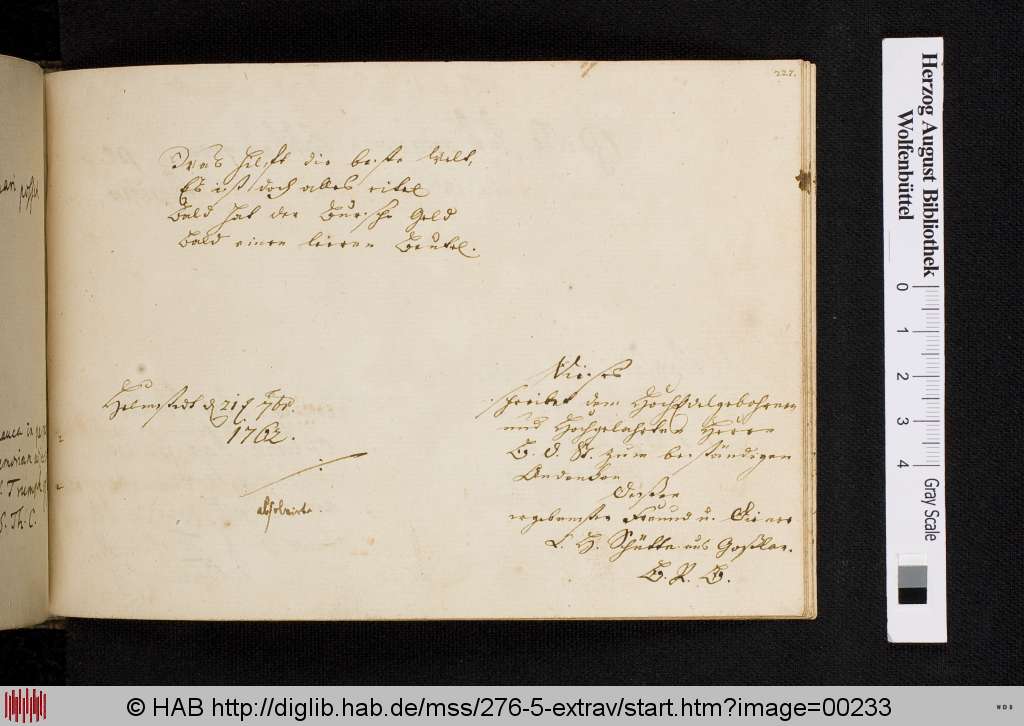 227.
Was hilft die beste Welt,
Es ist doch alles eitel
Bald hat der Bursche Geld
Bald einen leeren Beutel.
Helmstedt d 21 7br.
1762.
absolvirte.
Dieses
schreibet dem HochEdelgebohrnen
und Hochgelahrten Herrn
zum beständigen
Andenken
Dessen
ergebenster Freund u. Diener
L. H. Schütte aus Goslar.
Trumph
S. Th. C.
Herzog August Bibliothek
Wolfenbüttel
0 1 2 3 4
Gray Scale
© HAB http://diglib.hab.de/mss/276-5-extrav/start.htm?image=00233